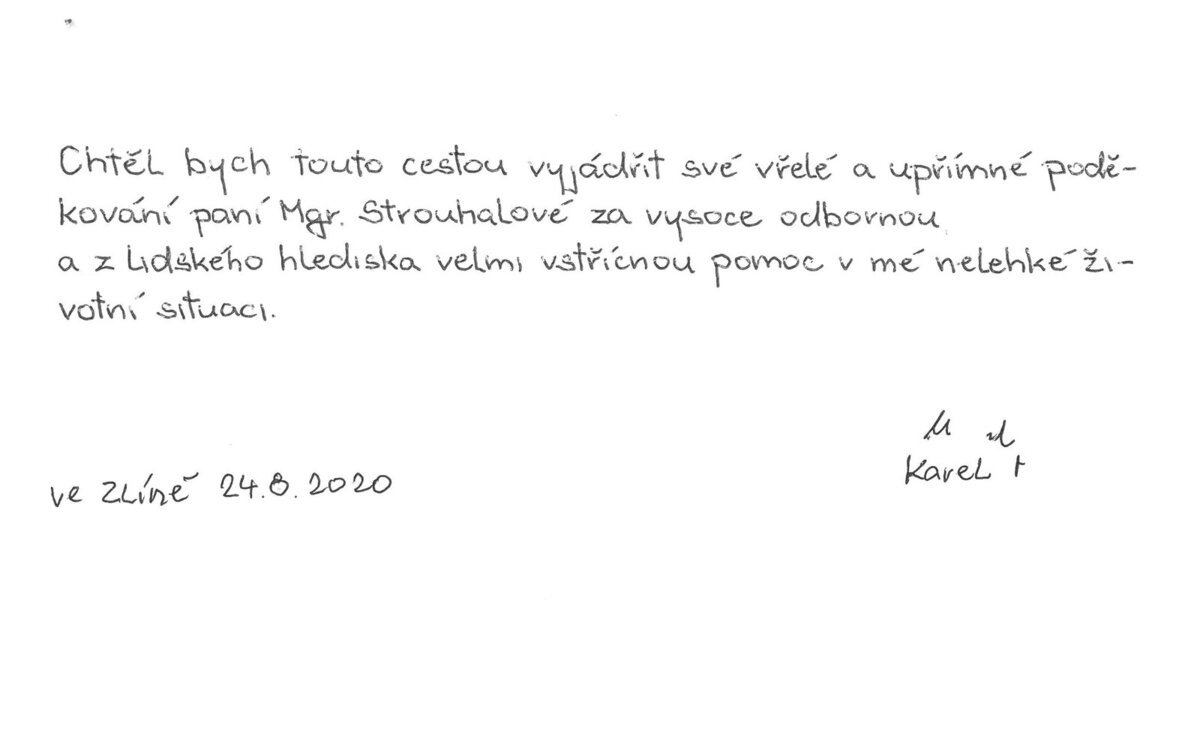 Chtěl bych touto cestou vyjádřit své vřelé a upřímné podě-
kování paní Mgr. Strouhalové za vysoce odbornou
a z lidského hlediska velmi vstřícnou pomoc v mé nelehké ži-
votní situaci.
ve Zlíně 24.8.2020
Karel